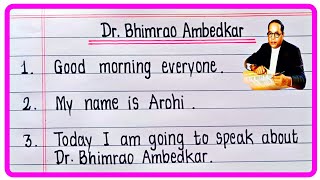 Dr. Bhimrao Ambedkar
1. Good morning everyone.
2. My name is Arohi.
3. Today I am going to speak about
Dr. Bhimrao Ambedkar.